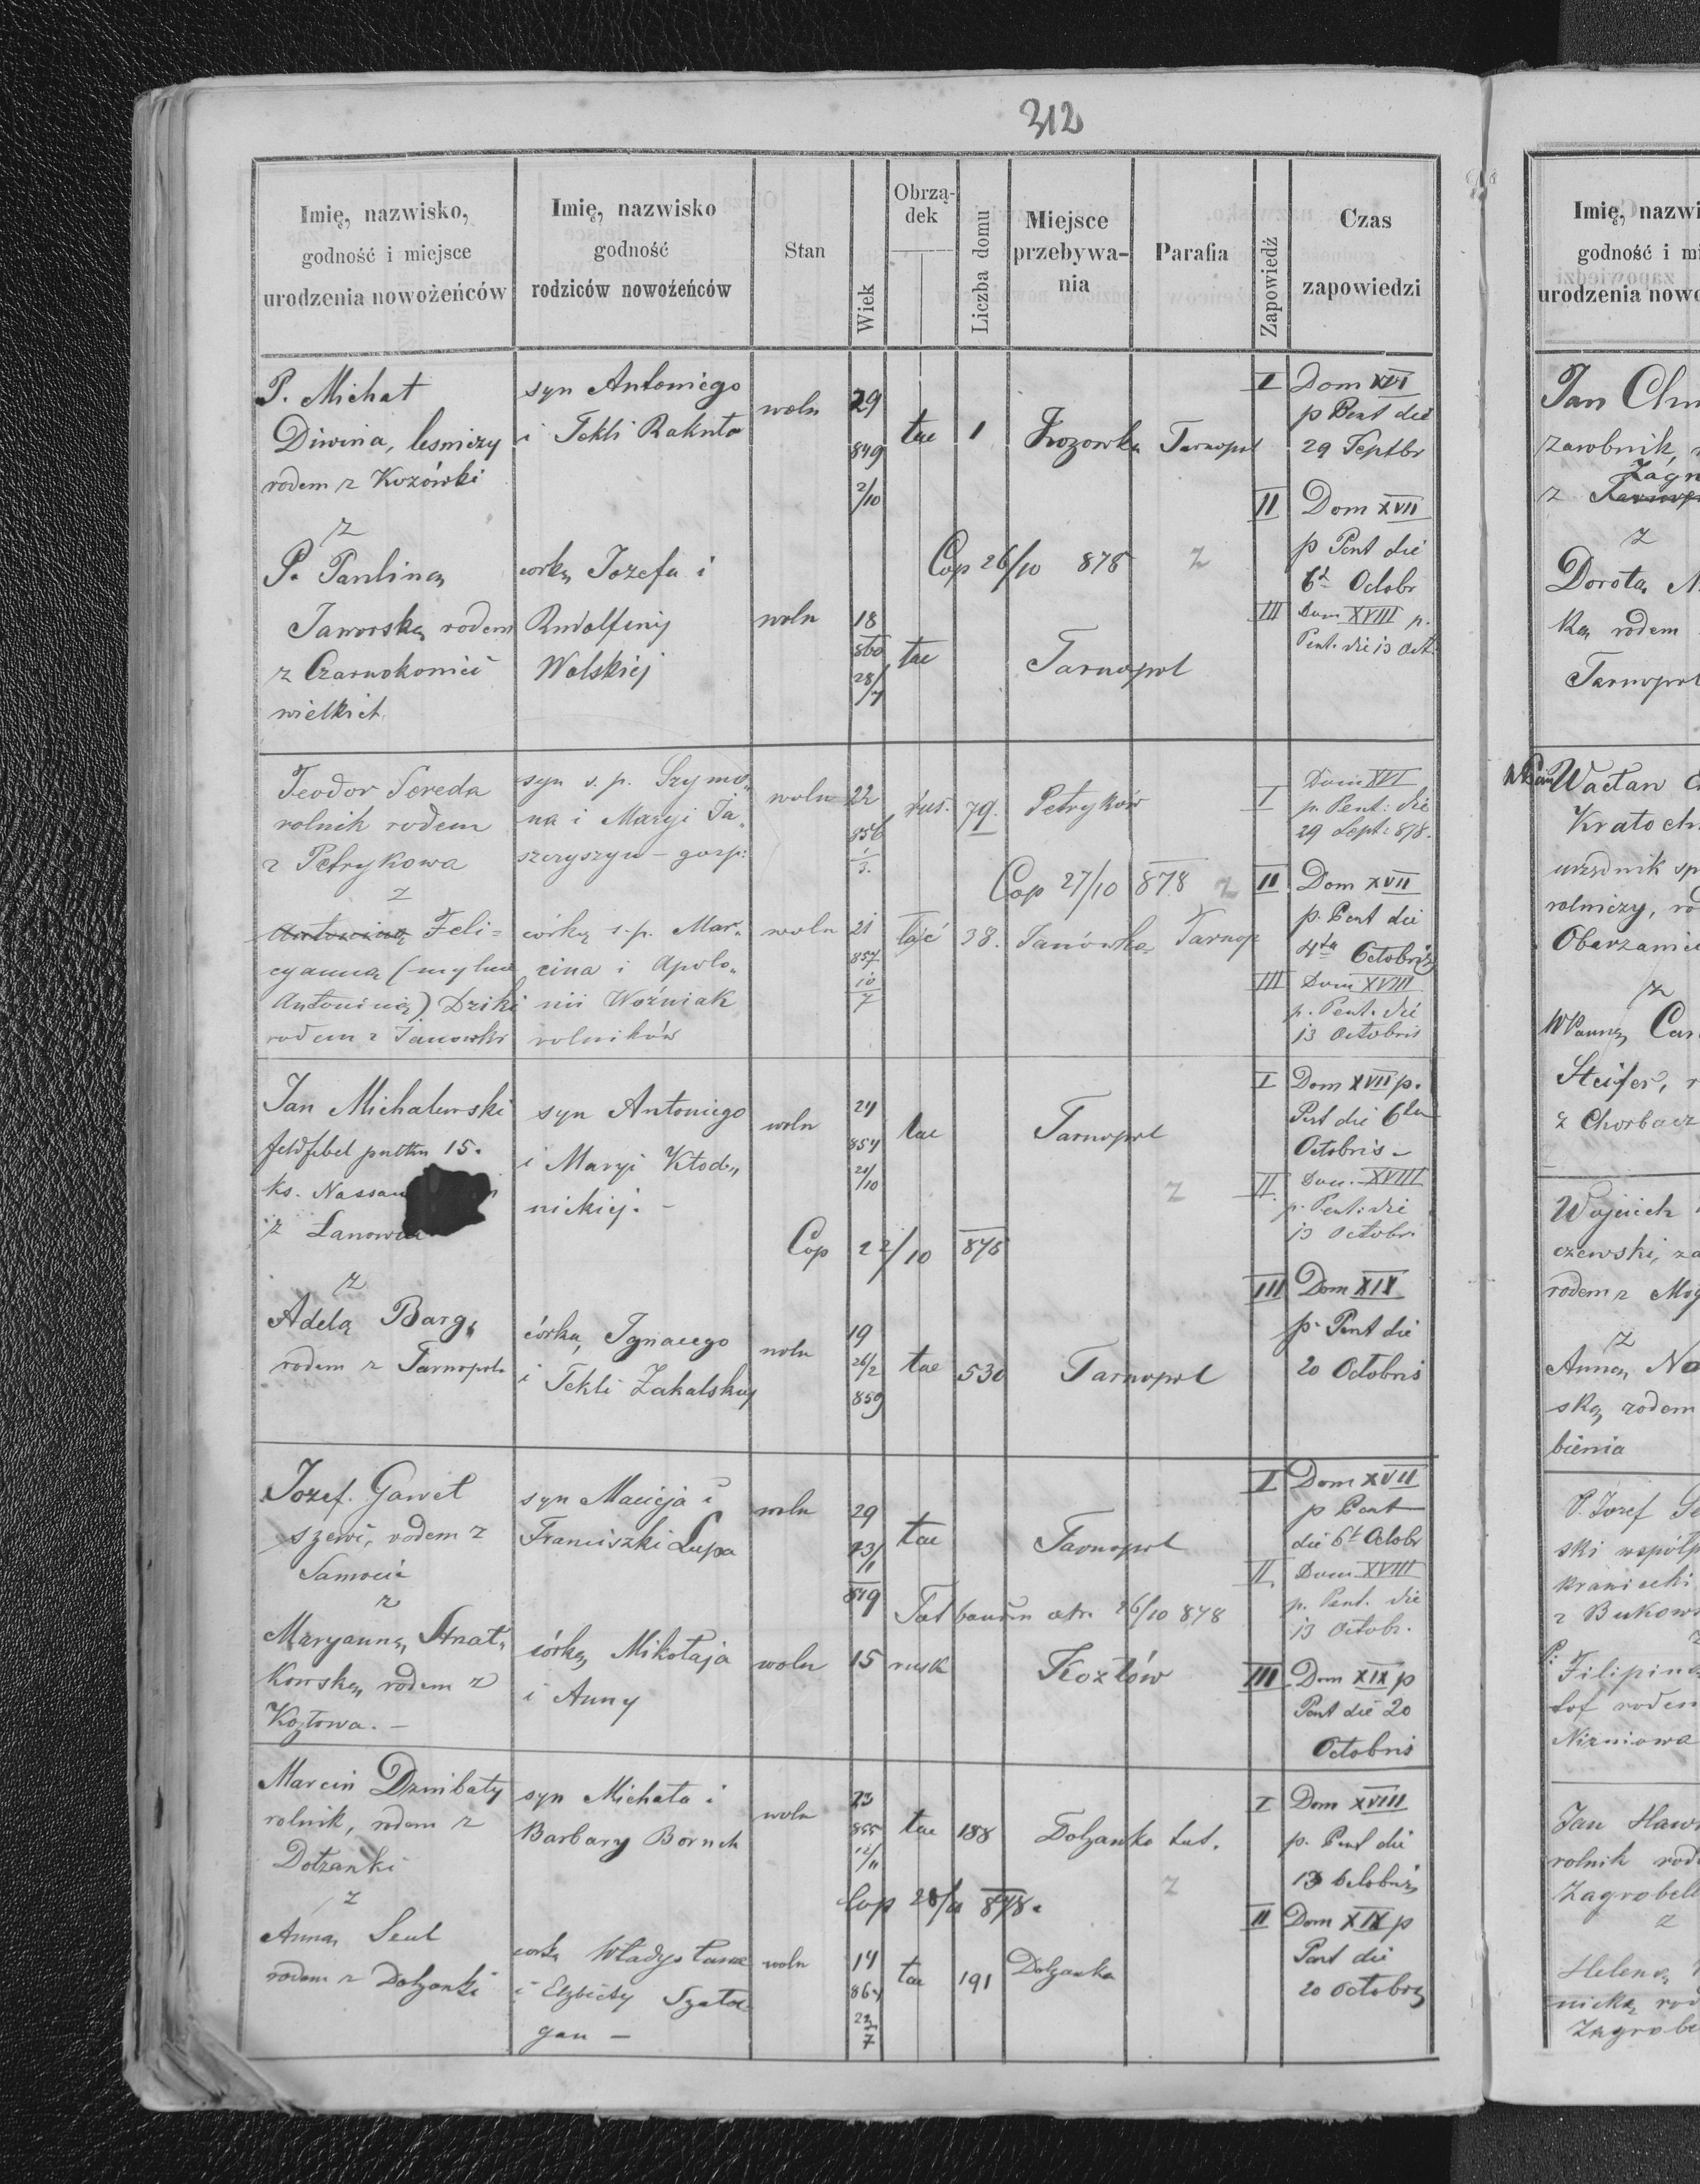 312
Imię, nazwisko,
godność i miejsce
urodzenia nowożeńców
Imię, nazwisko
godność
rodziców nowożeńców
Stan
Wiek
Obrzą-
dek
Liczba domu
Miejsce
przebywa-
nia
Parafia
Zapowiedź
Czas
zapowiedzi
P. Michał
Diwina, leśniczy
rodem z Kozówki
z
P. Pauliną
Jaworską rodem
z Czarnokoniec
wielkich
syn Antoniego
i Tekli
córką Jozefa i
Rudolfiny
Wolskiej
woln
woln
29
849
2/10
18
860
28/7
łac
łac
1
Tarnopol
Cop 26/10 878 z
Tarnopol
I Dom XVI
p Pent die
29 Septbr
II Dom XVII
p Pent die
6t Octobr
III Dom XVIII p.
Pent. die 13 Oct.
Teodor Sereda
rolnik rodem
z Petrykowa
z
Antoniną Feli=
cyanną (mylnie
Antoniną) Dziki
rodem z Janowki
syn s. p. Szymo„
na i Maryi Ja„
szczyszyn – gosp:
córką s. p. Mar„
cina i Apolo„
nii Woźniak
rolników
woln
woln
22
856
1/3.
21
857
10/7
rus.
łać
79.
38.
Petryków
Cop 27/10 878 z
Janówka Tarnop
I Dom XVI
p. Pent: die
29 Sept: 878.
II Dom XVII
p. Pent die
Octobris
III Dom XVIII
p. Pent. die
13 Octobris
Jan Michalewski
feldfebel pułku 15.
ks. Nassau
z
z
Adelą Barg„
rodem z Tarnopola
syn Antoniego
i Maryi Kłod„
nickiej. –
córką, Ignacego
i Tekli Zakalskiej
woln
woln
24
854
21/10
19
26/2
859
łac
łac
530
Tarnopol
z
Cop 22/10 878
Tarnopol
I Dom XVII p.
Pent die 6ta
Octobris –
II. Dom. XVIII
p. Pent: die
13 Octobr.
III Dom XIX
p. Pent die
20 Octobris
Jozef Gaweł
szewc, rodem z
z
Maryanną
kowską, rodem z
Kozłowa. –
syn Macieja i
Franciszki Łupa
córką Mikołaja
i Anny
woln
woln
29
849
15
łac
rusk
Tarnopol
26/10 878
Kozłów
I Dom XVII
p Pent
die 6t Octobr
II. Dom XVIII
p. Pent. die
13 Octobr.
III Dom XIX p
Pent die 20
Octobris
Marcin Dzmibaty
rolnik, rodem z
Dołżanki
z
Anną Seul
rodem z Dołżanki
syn Michała i
Barbary Boruch
córką Władysława
i Elżbiety Szała
gan –
woln
woln
23
855
12/11
14
864
23/7
łac
łac
188
191
Dolżanka tut.
Cop 878. z
Dolżanka
I Dom XVIII
p. Pent die
13 Octobris
II Dom XIX p
Pent die
20 Octobris
Imię, nazwi
godność i mi
urodzenia nowo
Jan
zarobnik,
z
z
Dorotą
ką rodem
Tarnopol
Wacław
Kratoch
urzędnik sp
rolniczy, ro
z
Steifer, r
z Chorbacz
Wojciech
czewski, za
rodem z
z
Anną, No
ską rodem
bienia
P. Jozef
ski współp
krawiecki
z Bukow
P: Filipiną
rodem
Nizniowa
Jan Hawr
rolnik rod
Zagrobell
z
Heleną
nicką rod
Zagrobe